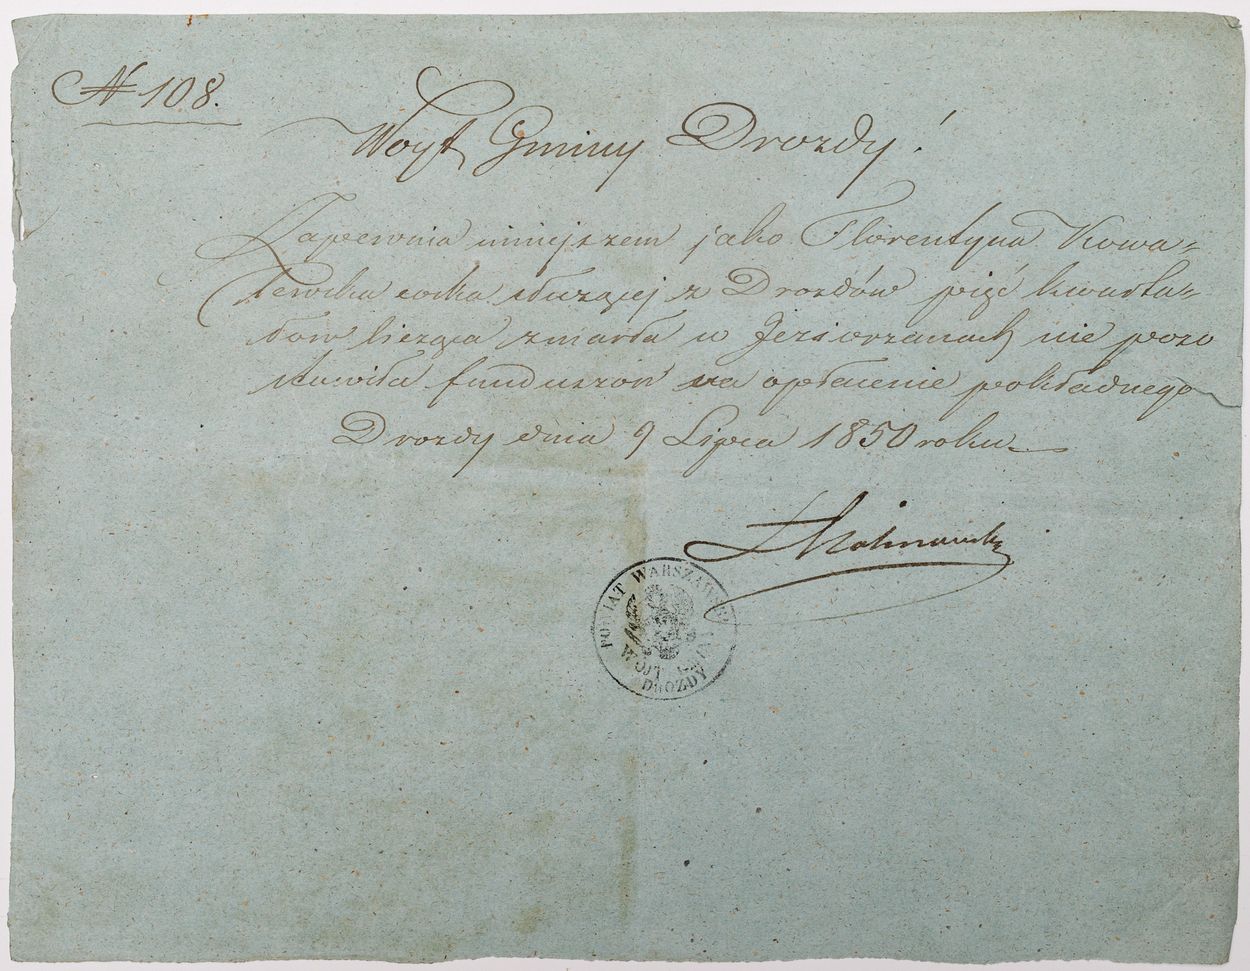 N 108.
Woyt Gminy Drozdy!
Zapewnia niniejszem jako Florentyna Kowa=
lewska córka służącej z Drozdów pięć kwarta=
łów licząca zmarła w Jeziorzanach nie pozo
stawiła funduszów na opłacenie pokładnego
Drozdy dnia 9 Lipca 1850 roku
Kalinowski
POWIAT WARSZAWSKI
WÓJT GMINY
DROZDY